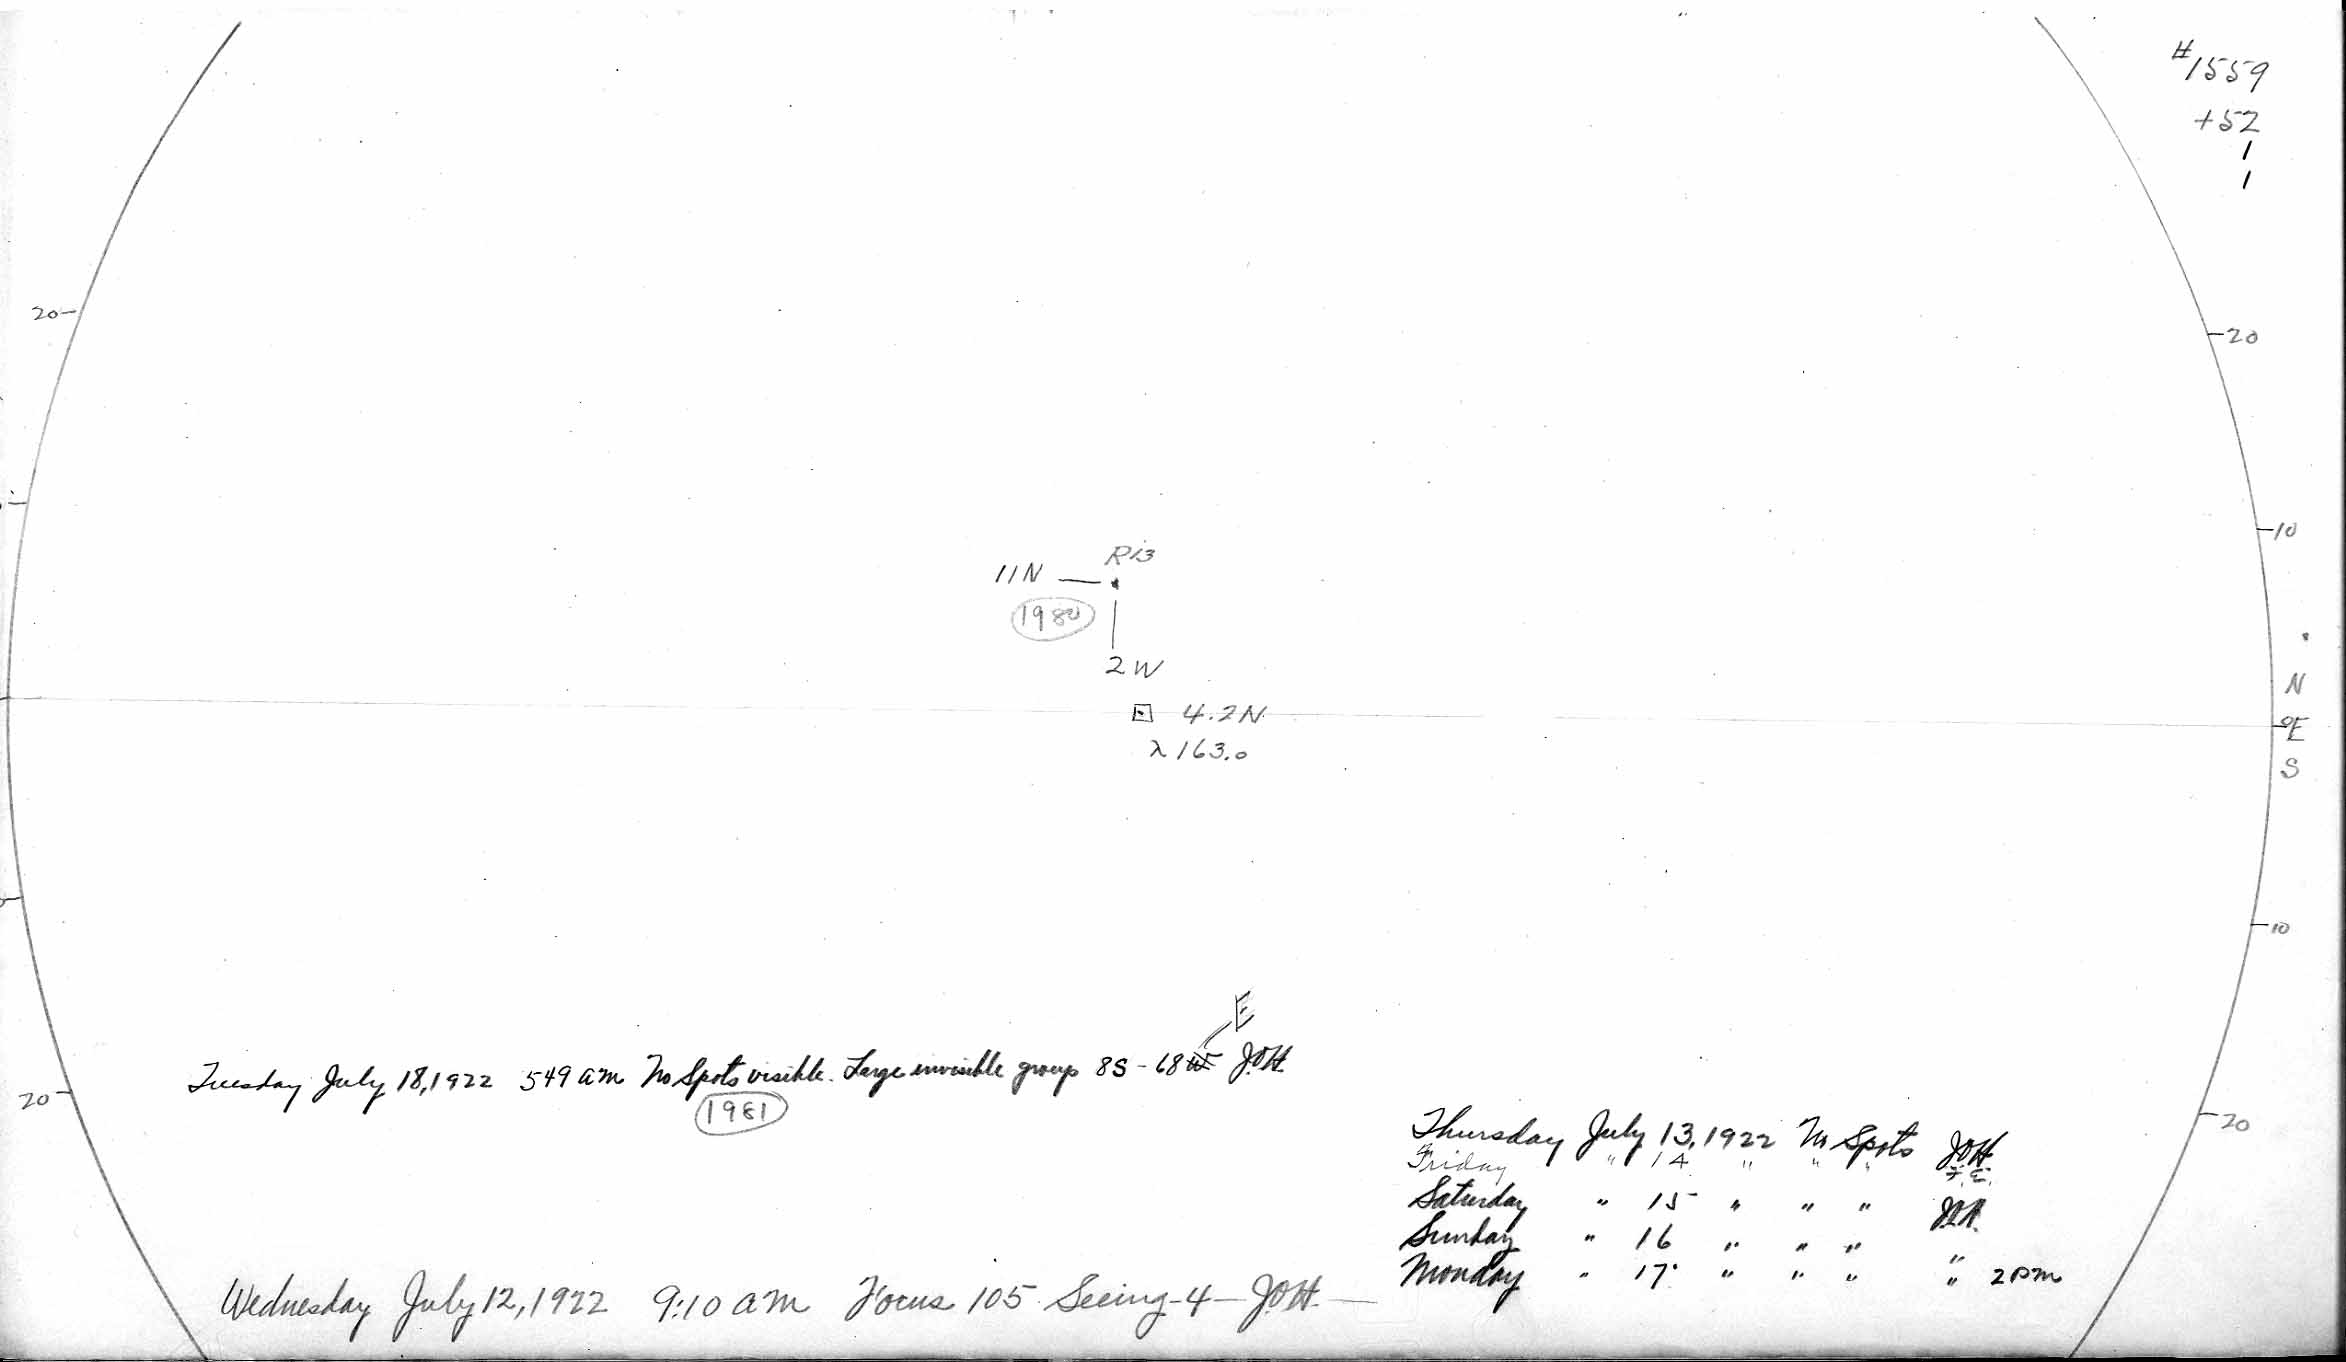 #1559
+52
1
1
20
20
10
R13
11N
1980
2W
N
4.2N
0E
λ 163.0
S
10
E
Tuesday July 18, 1922 549 am No Spots visible. Large invisible group 8S - 68W J.O.H.
1981
20
20
Thursday July 13, 1922 No Spots J.O.H.
Friday " 14 " " " F.E.
Saturday " 15 " " " J.O.H.
Sunday " 16 " " " "
Monday " 17 " " " " 2 pm
Wednesday July 12, 1922 9:10 am Focus 105 Seeing-4- J.O.H.